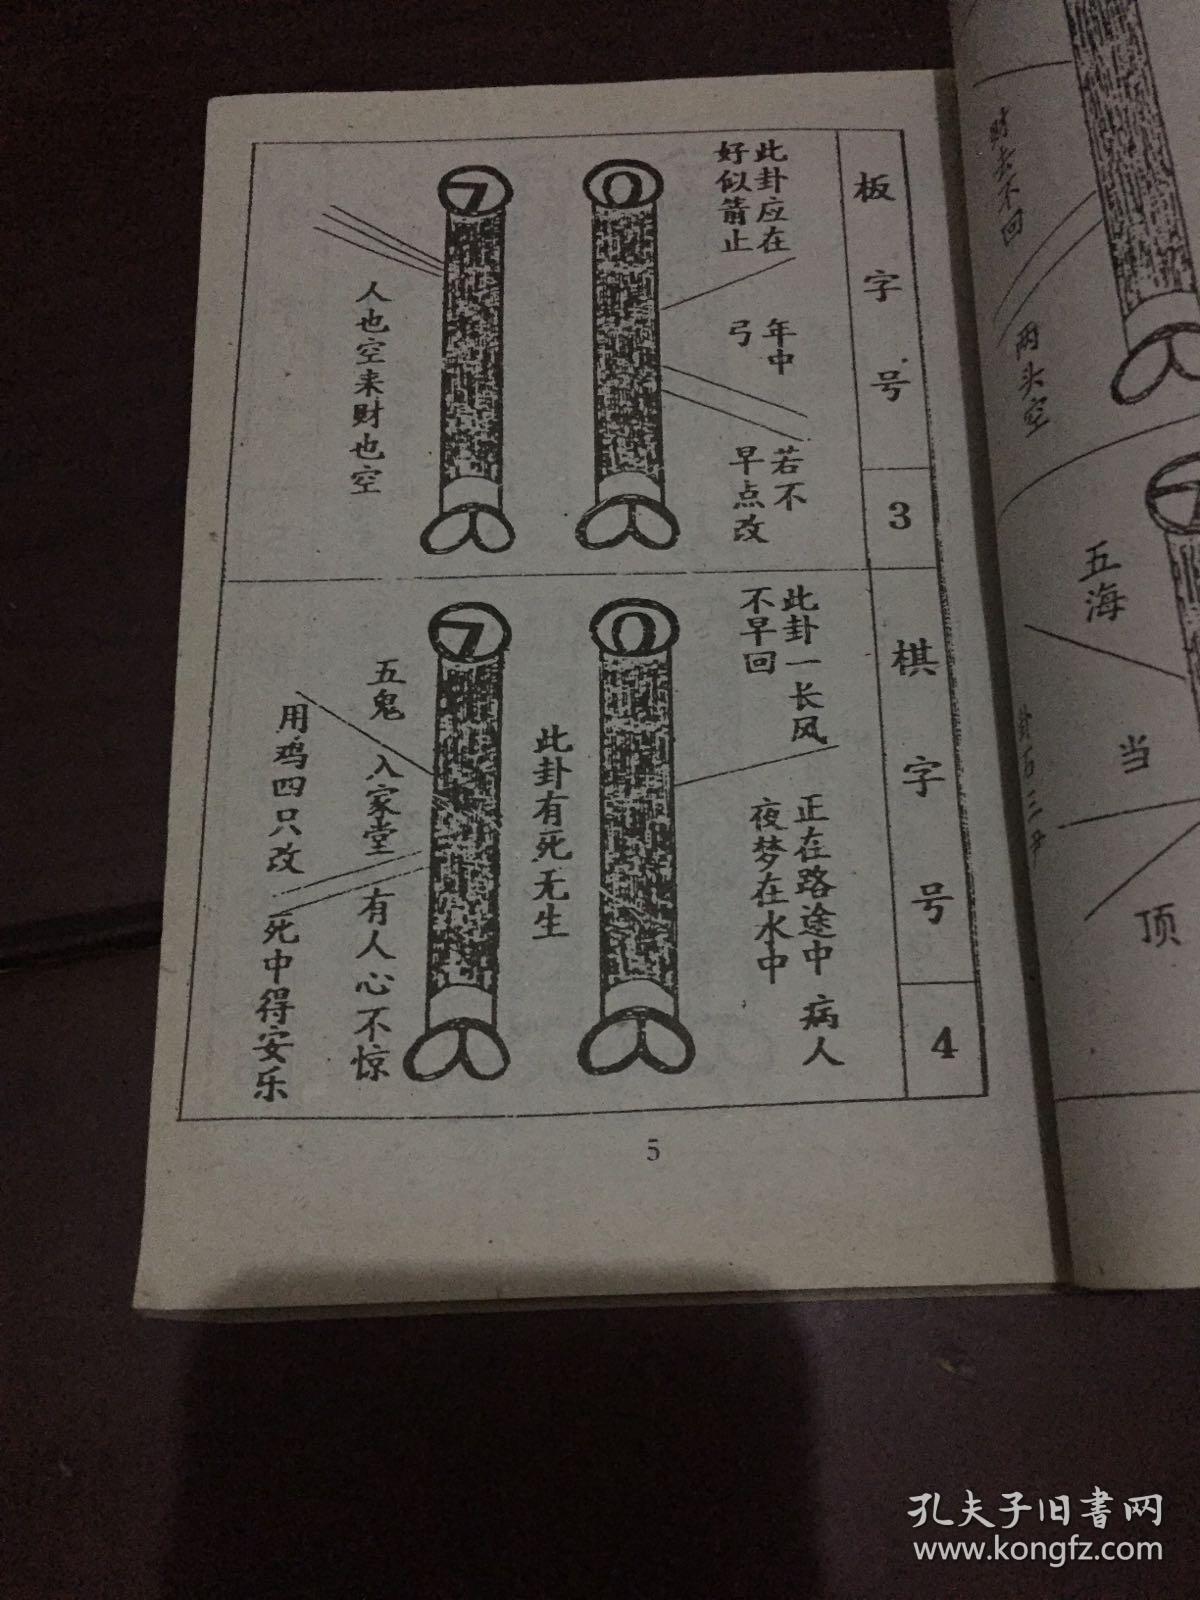 板字号
3
此卦应在
好似箭止
年中
弓
若不
早点改
0
7
人也空来财也空
棋字号
4
此卦一长风
不早回
正在路途中
夜梦在水中
病人
0
此卦有死无生
7
五鬼
入家堂
有人心不惊
用鸡四只改
死中得安乐
5
财去不回
两头空
五海
当
顶
孔夫子旧书网
www.kongfz.com